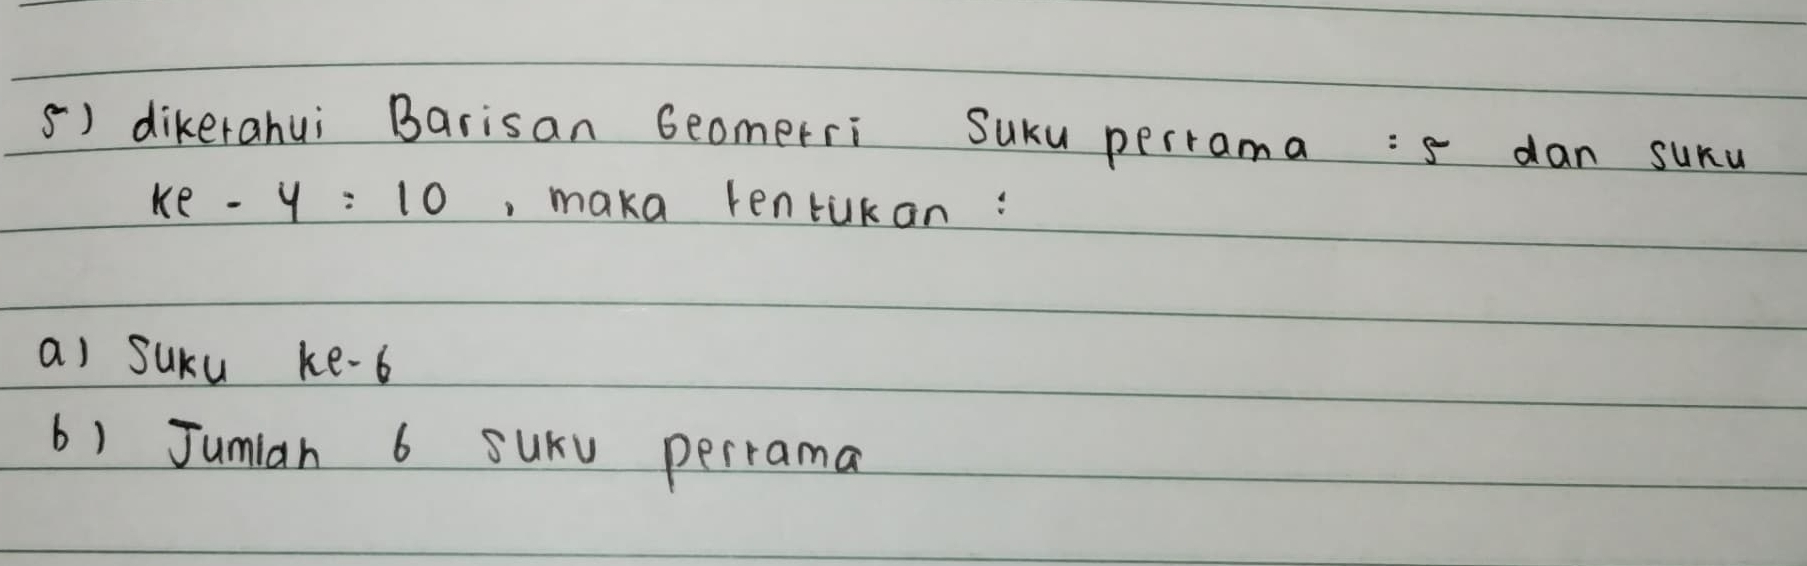 5) diketahui Barisan Geometri Suku pertama = 5 dan suku
ke - 4 = 10 , maka tentukan :
a) Suku ke-6
b) Jumlah 6 suku pertama